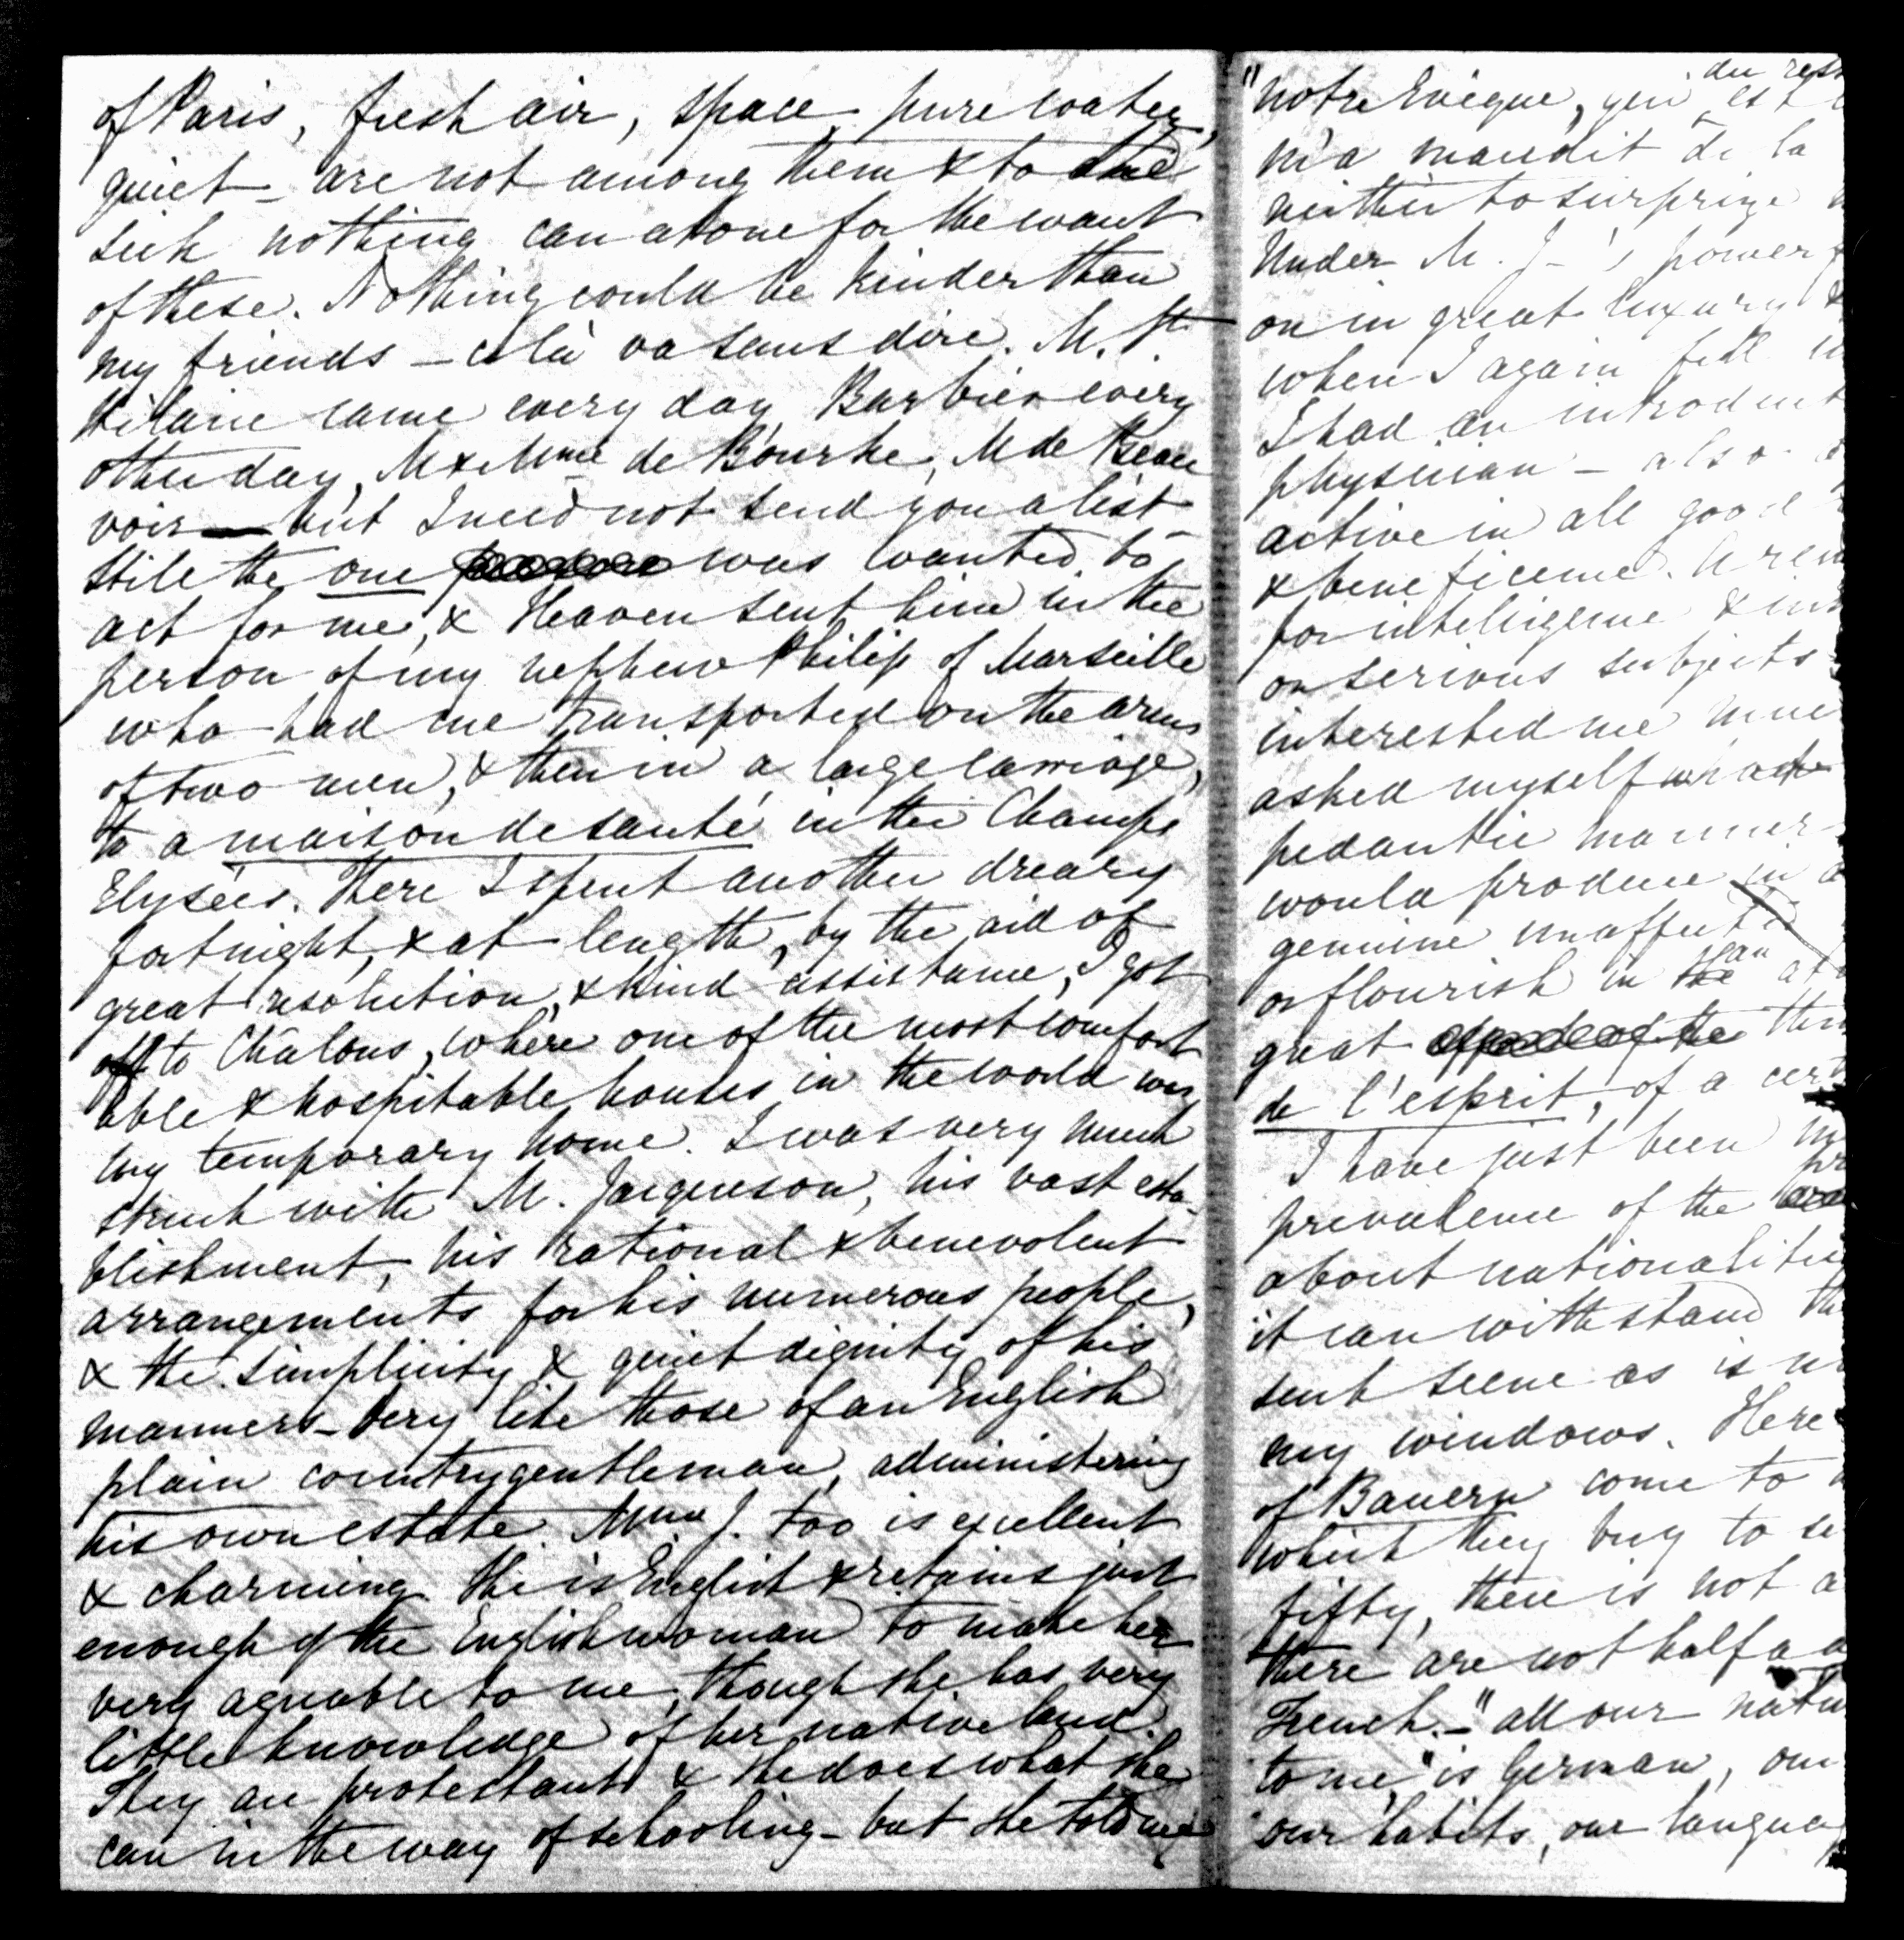 of Paris, fresh air, space, pure water,
quiet – are not among them & to the
sick nothing can atone for the want
of these. Nothing could be kinder than
my friends – cela va sans dire. M. St.
Hilaire came every day, Barbier every
other day, M & Mme de Bourke, M de Beau
voir — but I need not send you a list –
Still the one was wanted to
act for me, & Heaven sent him in the
person of my nephew Philip of Marseille
who had me transported on the arms
of two men, & then in a large carriage,
to a maison de santé in the Champs
Elysées. There I spent another dreary
fortnight, & at length, by the aid of
great resolution, & kind assistance, I got
off to Châlons, where one of the most comfort
able & hospitable houses in the world was
my temporary home. I was very much
struck with M. Jacqueson, his vast esta-
blishment, his rational & benevolent
arrangements for his numerous people,
& the simplicity & quiet dignity of his
manners – Very like those of an English
plain country gentleman, administering
his own estate. Mme J. too is excellent
& charming. She is English & retains just
enough of the Englishwoman to make her
very agreable to me, though she has very
little knowledge of her native land.
They are protestants & she does what she
can in the way of schooling – but she told me
"notre Evêque, qui du rest est
m'a maudit de la
neither to surprize
Under M. J–'s power
on in great luxury &
when I again fell
I had an introduct
physician – also
active in all good
& beneficence.
for intelligence &
on serious subjects
interested me muc
asked myself what
pedantic manner
would produce in a
genuine unaffect
or flourish in an
great
de l'esprit, of a cert
I have just been
prevalence of the
about nationalitie
it can withstand th
sent scene as is
my windows. Here
of Bauern come to
which they buy to
fifty, there is not a
there are not half a
French. – "all our natu
to me, "is German, our
"our habits, our langua